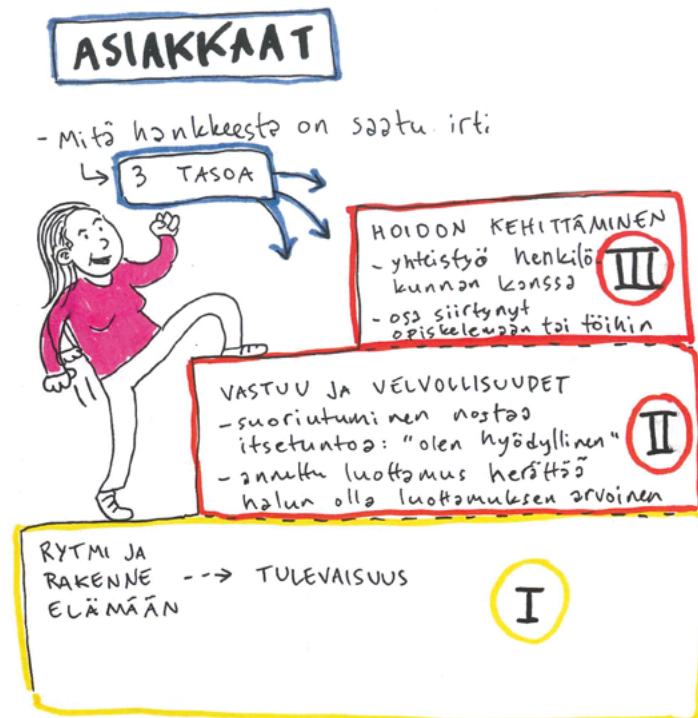 ASIAKKAAT
- Mitä hankkeesta on saatu irti
↳ 3 TASOA
HOIDON KEHITTÄMINEN
- yhteistyö henkilö-
kunnan kanssa
- osa siirtynyt
opiskelemaan tai töihin
III
VASTUU JA VELVOLLISUUDET
- suoriutuminen nostaa
itsetuntoa: "olen hyödyllinen"
- annettu luottamus herättää
halun olla luottamuksen arvoinen
II
RYTMI JA
RAKENNE ---> TULEVAISUUS
ELÄMÄÄN
I